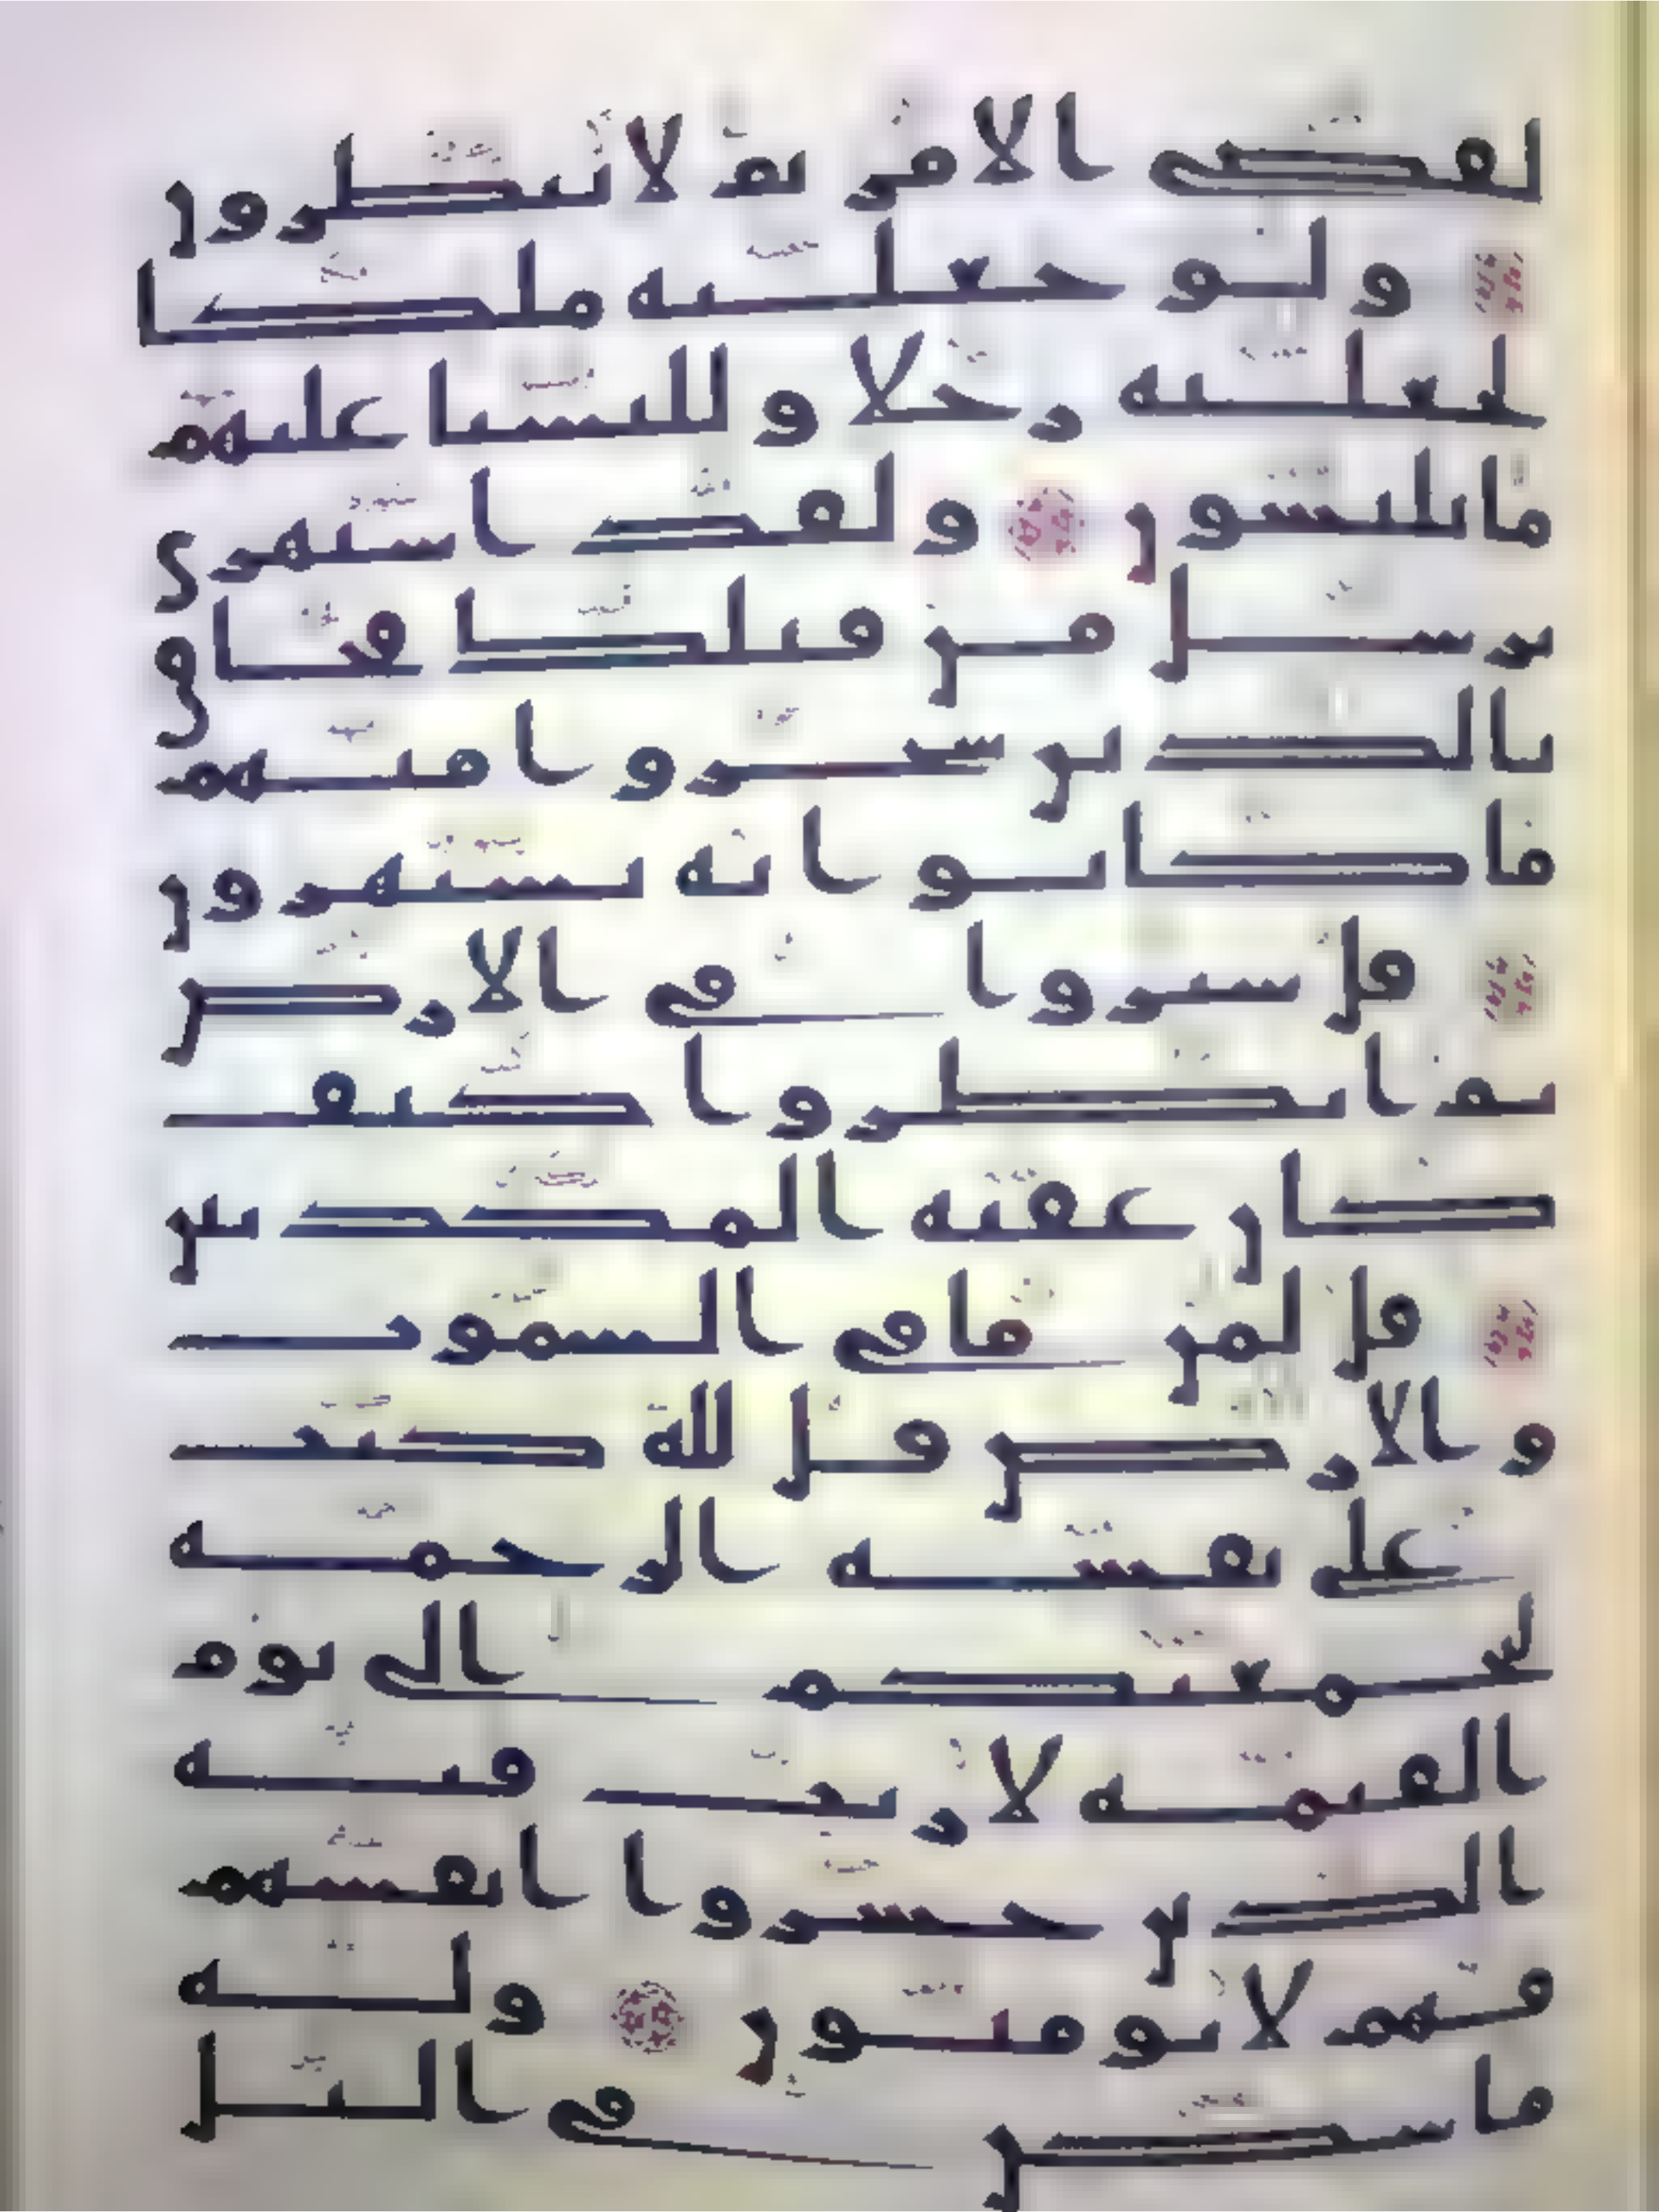 لقضى الامر ثم لا ينظرون
ولو جعلنه ملكا
لجعلنه رجلا وللبسنا عليهم
ما يلبسون ولقد استهزى
برسل من قبلك فحاق
بالذين سخروا منهم
ما كانوا به يستهزون
قل سيروا في الارض
ثم انظروا كيف
كان عقبة المكذبين
قل لمن ما في السموت
والارض قل لله كتب
على نفسه الرحمة
ليجمعنكم الى يوم
القيمة لا ريب فيه
الذين خسروا انفسهم
فهم لا يومنون وله
ما سكن في اليل